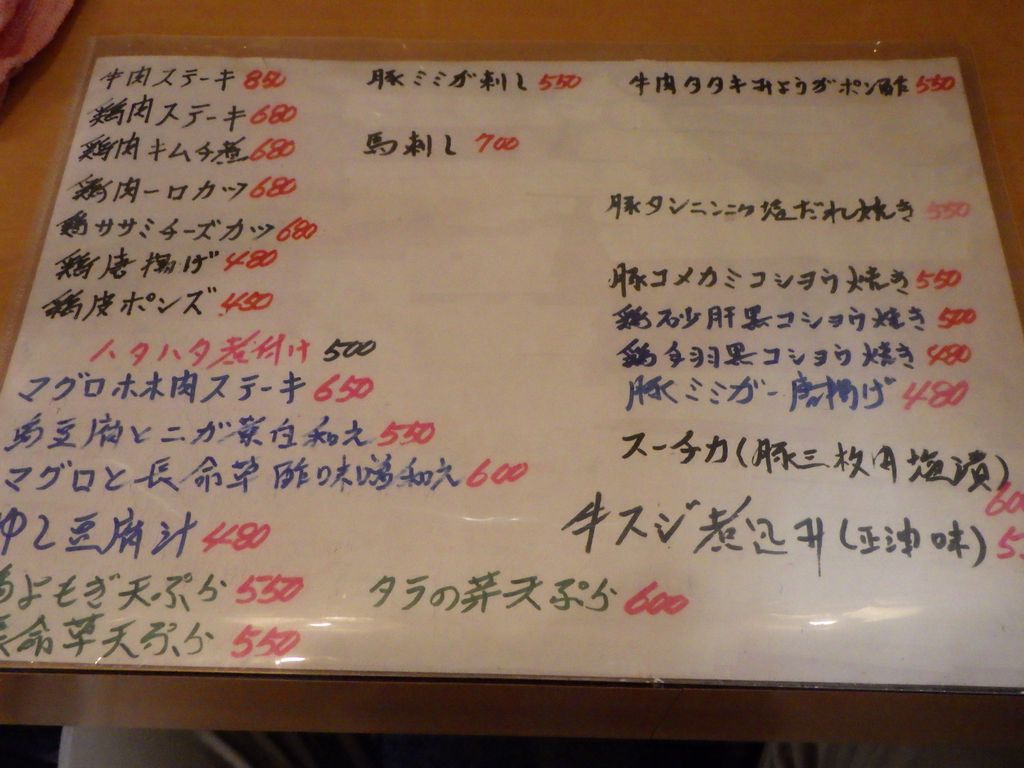 牛肉ステーキ 850
鶏肉ステーキ 680
鶏肉キムチ煮 680
鶏肉一口カツ 680
鶏ササミチーズカツ 680
鶏唐揚げ 480
鶏皮ポンズ 480
ハタハタ煮付け 500
マグロホホ肉ステーキ 650
島豆腐とニガ菜白和え 550
マグロと長命草酢味噌和え 600
ゆし豆腐汁 480
島よもぎ天ぷら 550
長命草天ぷら 550
豚ミミガ刺し 550
馬刺し 700
タラの芽天ぷら 600
牛肉タタキみょうがポン酢 550
豚タンニンニク塩だれ焼き 550
豚コメカミコショウ焼き 550
鶏砂肝黒コショウ焼き 500
鶏手羽黒コショウ焼き 480
豚ミミガー唐揚げ 480
スーチカ(豚三枚肉塩漬)
牛スジ煮込み(正油味)